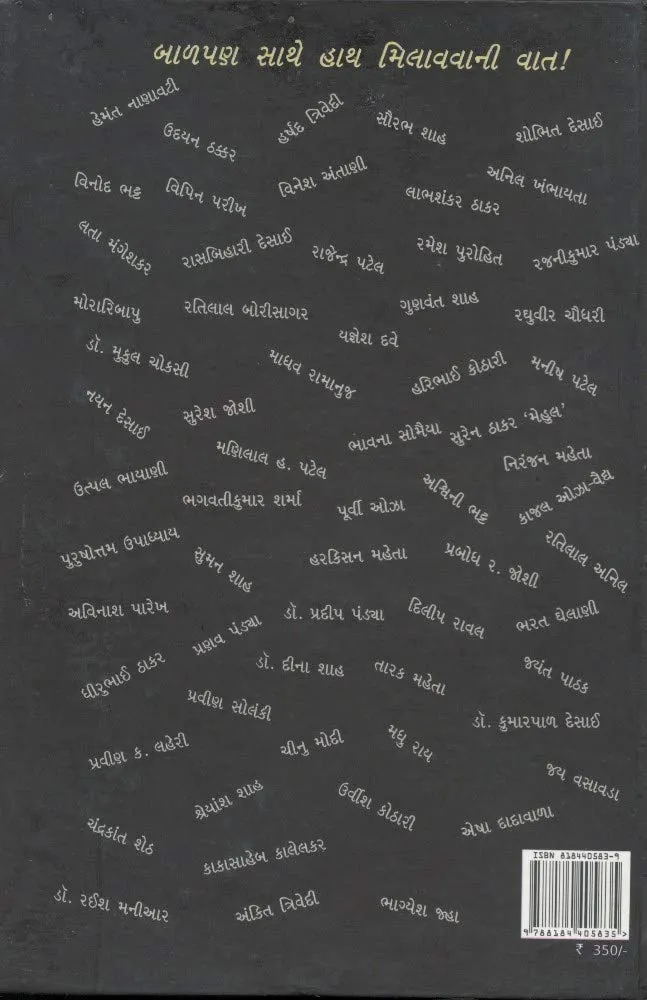 બાળપણ સાથે હાથ મિલાવવાની વાત!
હેમંત નાણાવટી
ઉદયન ઠક્કર
હર્ષદ ત્રિવેદી
સૌરભ શાહ
શોભિત દેસાઈ
વિનોદ ભટ્ટ
વિપિન પરીખ
વિનેશ અંતાણી
લાભશંકર ઠાકર
અનિલ ખંભાયતા
લતા મંગેશકર
રાસબિહારી દેસાઈ
રાજેન્દ્ર પટેલ
રમેશ પુરોહિત
રજનીકુમાર પંડ્યા
મોરારિબાપુ
રતિલાલ બોરીસાગર
યજ્ઞેશ દવે
ગુણવંત શાહ
રઘુવીર ચૌધરી
ડૉ. મુકુલ ચોકસી
માધવ રામાનુજ
હરિભાઈ કોઠારી
મનીષ પટેલ
નયન દેસાઈ
સુરેશ જોશી
ભાવના સોમૈયા
સુરેન ઠાકર ‘મેહુલ’
મણિલાલ હ. પટેલ
નિરંજન મહેતા
ઉત્પલ ભાયાણી
ભગવતીકુમાર શર્મા
પૂર્વી ઓઝા
અશ્વિની ભટ્ટ
કાજલ ઓઝા-વૈદ્ય
પુરુષોત્તમ ઉપાધ્યાય
સુમન શાહ
હરકિસન મહેતા
પ્રબોધ ર. જોશી
રતિલાલ અનિલ
અવિનાશ પારેખ
પ્રણવ પંડ્યા
ડૉ. પ્રદીપ પંડ્યા
દિલીપ રાવલ
ભરત ઘેલાણી
ધીરુભાઈ ઠાકર
ડૉ. દીના શાહ
તારક મહેતા
જયંત પાઠક
પ્રવીણ સોલંકી
ડૉ. કુમારપાળ દેસાઈ
પ્રવીણ ક. લહેરી
ચીનુ મોદી
મધુ રાય
જય વસાવડા
શ્રેયાંશ શાહ
ઉર્વીશ કોઠારી
એષા દાદાવાળા
ચંદ્રકાંત શેઠ
કાકાસાહેબ કાલેલકર
ડૉ. રઈશ મનીઆર
અંકિત ત્રિવેદી
ભાગ્યેશ જ્હા
ISBN 818440583-9
9 788184 405835 >
₹ 350/-